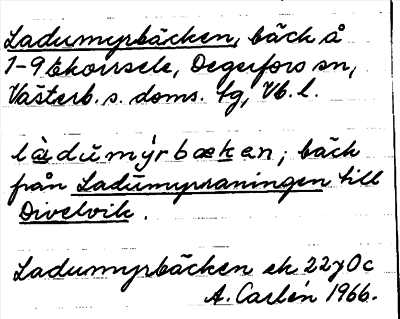 Ladumyrbäcken, bäck å
1-9 Ekorrsele, Degerfors sn,
Västerb. s. doms. tg, Vb. l.
làdŭmýrbækan; bäck
från Ladumyraningen till
Divelvik.
Ladumyrbäcken ek 22 7 0c
A. Carlén 1966.